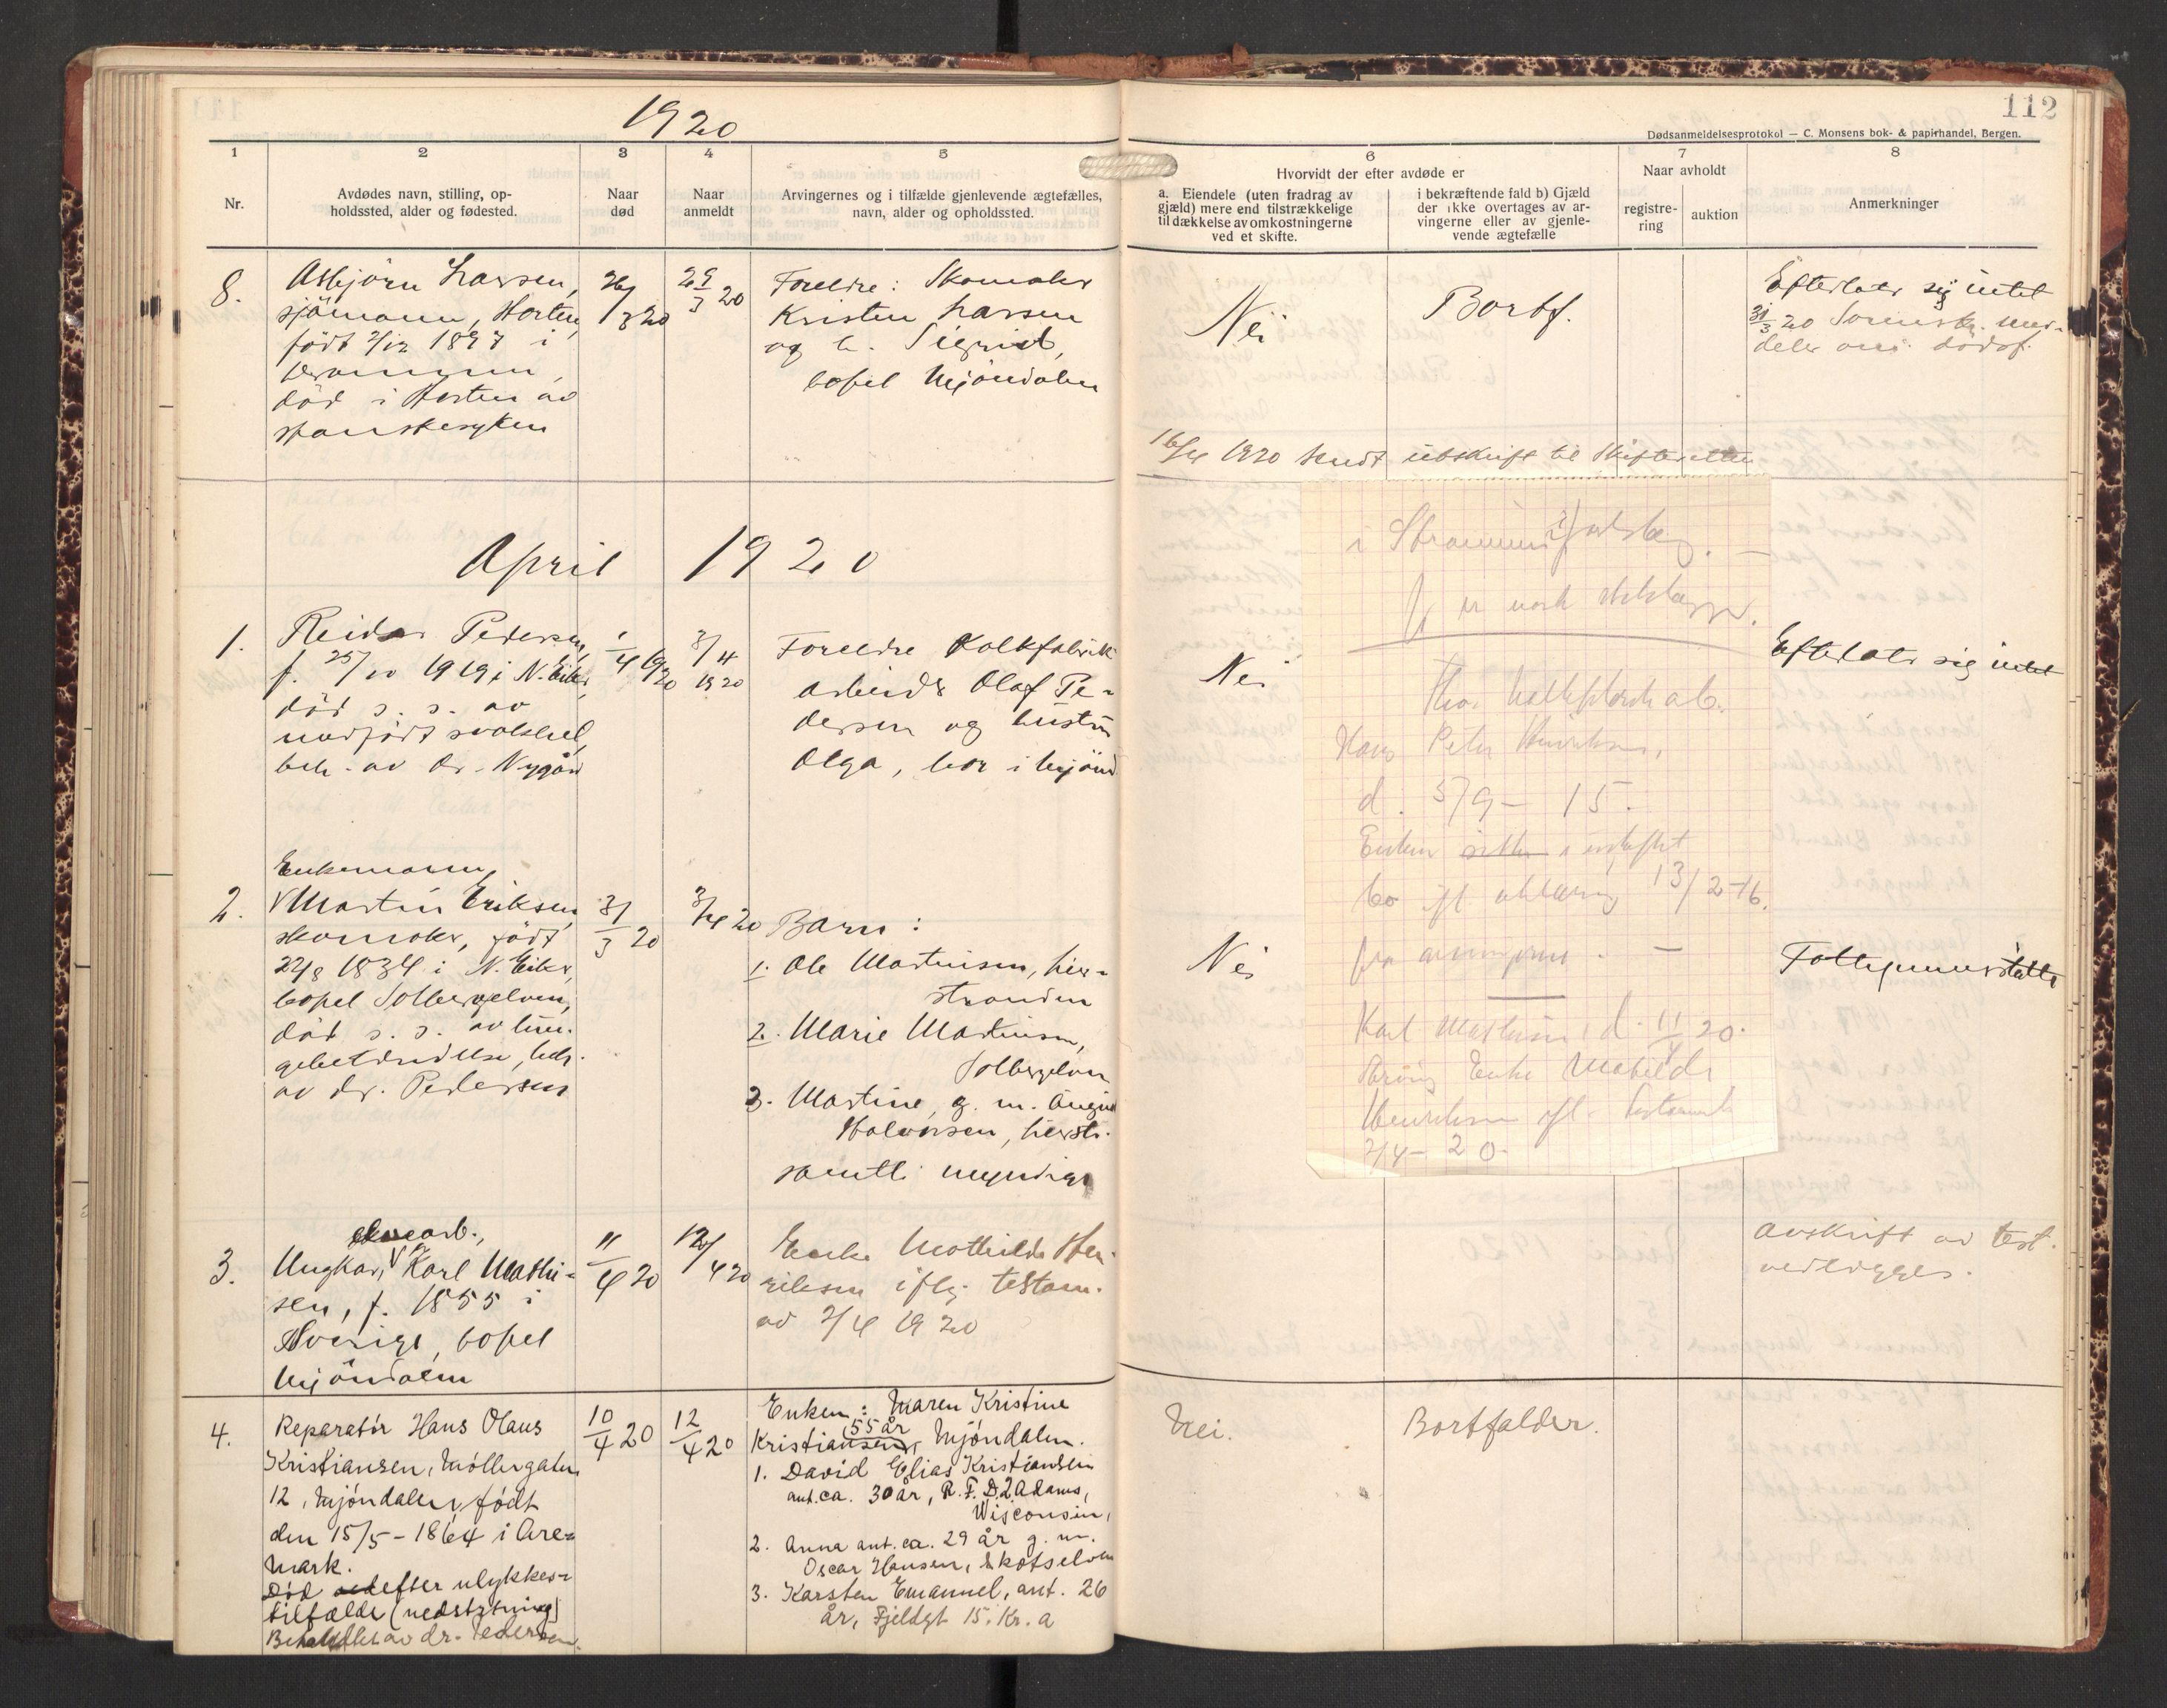 1920
112
Dødsanmeldelsesprotokol — C. Monsens bok- & papirhandel, Bergen.
1 2 3 4 5 6 7 8
Nr.
Avdødes navn, stilling, op-
holdssted, alder og fødested.
Naar
død
Naar
anmeldt
Arvingernes og i tilfælde gjenlevende ægtefælles,
navn, alder og opholdssted.
Hvorvidt der efter avdøde er
a. Eiendele (uten fradrag av
gjæld) mere end tilstrækkelige
til dækkelse av omkostningerne
ved et skifte.
i bekræftende fald b) Gjæld
der ikke overtages av ar-
vingerne eller av gjenle-
vende ægtefælle
Naar avholdt
registre-
ring
auktion
Anmerkninger
8.
Asbjörn Larsen,
sjömann, Horten,
født 2/12 1897 i
død i Horten av
spanskesyken
26/3 20
29/3 20
Foreldre: Skomaker
Kristen Larsen
og h. Sigrid,
bopel Mjöndalen
Nei
Bortf.
Efterlater sig intet
31/3 20 Sorensk. med-
deler om dødsf.
16/4 1920 sendt utskrift til Skifteretten
April 1920
1.
Reidar Pedersen,
f. 25/10 1919 i N. Eiker,
död s. s. av
medfödt svakhet,
beh. av dr. Nygård
1/4 1920
3/4 1920
Foreldre Kalkfabrik
arbeider Olaf Pe-
dersen og hustru
Olga, bor i Mjönd
Nei
Efterlater sig intet
2.
Enkemann,
Martin Eriksen
skomaker, född
22/8 1834 i N. Eiker,
bopel Solbergelven,
död s. s. av lun-
gebetændelse, beh.
av dr. Pedersen
31/3 20
3/4 20
Barn:
1. Ole Martinsen, hier-
stranden
2. Marie Martinsen,
Solbergelven
3. Martine, g. m. August
Halvorsen, hierstr.
samtl. myndige
Nei
Fattigunderstöttet
3.
Ungkar, Karl Mathi-
sen, f. 1855 i
Sverige, bopel
Mjöndalen
11/4 20
12/4 20
Enke Mathilde Hen-
riksen iflg. testam.
av 2/4 1920
avskrift av test.
vedlægges.
4.
Reparatör Hans Olaus
Kristiansen, Möllergaten
12, Mjöndalen, födt
den 15/5 - 1864 i Are-
mark.
Död efter ulykkes-
tilfælde (nedstyrtning)
Behandlet av dr. Pedersen.
10/4 20
12/4 20
Enken: Maren Kristine
55 år
Kristiansen, Mjöndalen.
1. David Elias Kristiansen
ant. ca. 30 år, R. F. D. 2 Adams,
Wisconsin,
2. Anna ant. ca. 29 år g. m.
Oscar Hansen, Skotselven
3. Karsten Emanuel, ant. 26
år, Fjeldgt 15. Kr. a
Nei.
Bortfalder.
Hans Peter Henriksen,
d. 5/9 - 15.
Enken i uskiftet
bo ifl. erklæring 13/2-16.
fra arvingerne. —
Karl Mathisen, d. 11/4 20.
Arving Enke Mathilde
Henriksen ifl. testament
2/4 - 20.